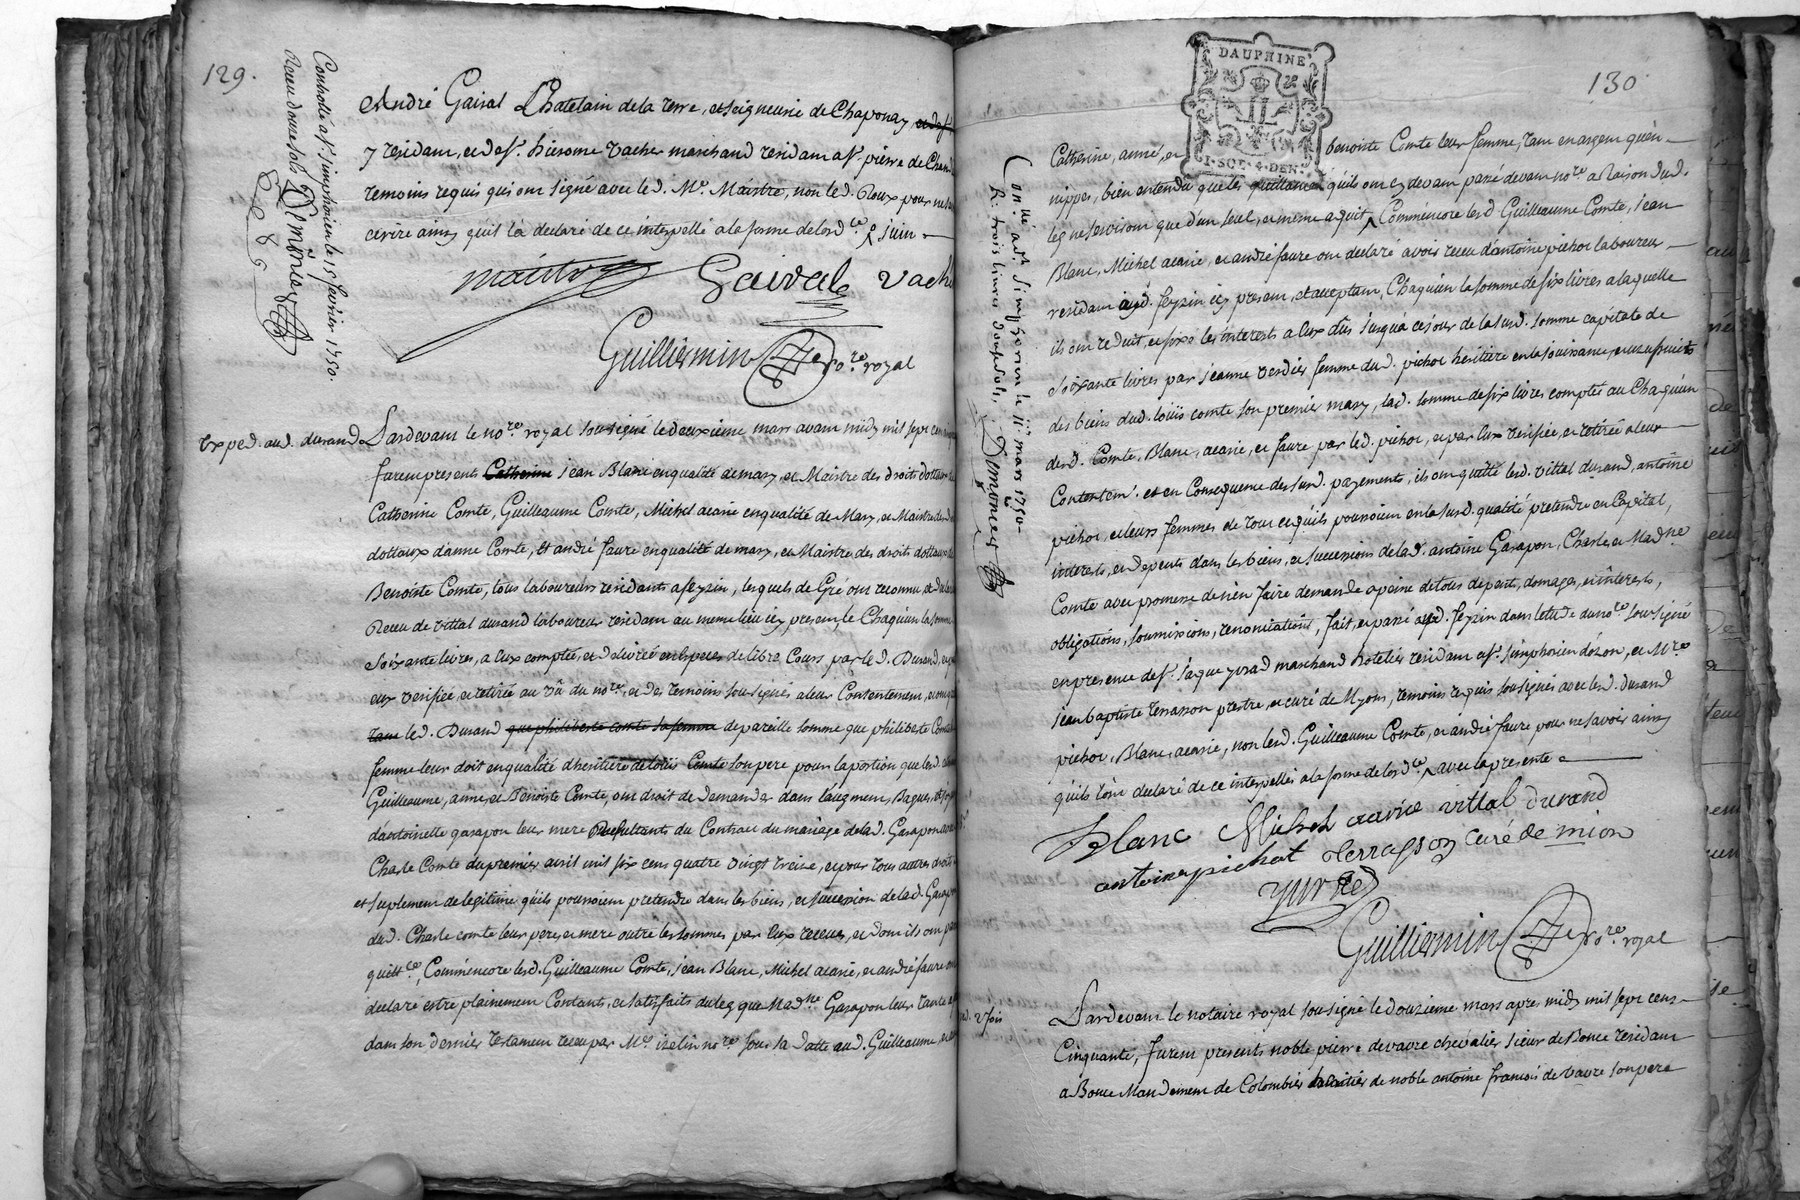 129.
Controllé a St. simphorien le 15 fevrier 1750.
Receu douze sols
Demônez
André Gairal Chatelain de la terre, et seigneurie de Chaponay
y residant, et de sr. hierome vacher marchand residant a St. pierre de Chan
temoins requis qui ont signé avec led. Me. Maistre, non led. Roux pour ne
ecrire ainsy quil l'a declaré de ce interpellé a la forme de lordce. juin
maistre Gairal vache
Guilliermin no.re royal
Exped. aud. durand
Pardevant le no.re royal sousigné le deuxieme mars avant midy mil sept cen
furent presents Catherine jean Blanc en qualité de mary, et Maistre des droits dottaux
Catherine Comte, Guilleaume Comte, Michel acarie en qualité de Mary, et Maistre des
dottaux d'anne Comte, Et andré faure en qualité de mary, et Maistre des droits dottaux
Benoiste Comte, tous laboureurs residants a feyzin, lesquels de Gré ont reconnu
Receu de vittal durand laboureur residant au meme lieu icy present, Chaquun la somme
soixante livres, a Eux comptée, et delivrée en Especes de libre Cours par led. Durand,
eux verifiée, et retirée au vû du no.re, et des temoins sousignés a leur Contentement,
led. Durand que philiberte comte sa femme de pareille somme que philiberte Comte
femme leur doit en qualité d'heritiere de loüis Comte son pere pour la portion que lesd.
Guilleaume, anne, et Benoiste Comte, ont droit de Demander dans laugment, Bagues,
d'antoinette garapon leur mere Resultants du Contract du mariage de lad. Garapon avec
Charle Comte du premier avril mil six cens quatre vingt treize, et pour tous autres droits
et suplement de legitime qu'ils pourroient pretendre dans les biens, et succession de lad. Garap
dud. Charle comte leur pere, et mere outre les sommes par Eux receues, et dont ils ont
quittce. Comm'encore lesd. Guilleaume Comte, jean Blanc, Michel acarie, et andré faure
declaré estre plainement Contants, et satisfaits du leg que Madne. Garapon leur tante
dans son dernier testament receu par Me. izelin no.re sous sa datte aud. Guilleaume,
130
DAUPHINE
1. SOL. 4. DEN.
Conllé a St. Simphorien le 11e mars 1750
R. trois livres douze sols.
Demônez
Catherine, anne, et benoiste Comte leur femme, tant en argent qu'en
nippes, bien entendu que les quittances quils ont cy devant passé devant no.re a Raison dud.
leg ne serviront que d'un seul, et meme aquit Comm'encore lesd Guilleaume Comte, jean
Blanc, Michel acarie, et andré faure ont declaré avoir receu d'antoine pichot laboureur
residant aud. feyzin icy present, et acceptant, Chaquun la somme de six livres a laquelle
ils ont reduit, et fixé les interests a Eux dûs jusqu'a ce jour de la susd. somme capitale de
soixante livres par jeanne verdier femme dud. pichot heritiere en la jouissance, et uzufruits
des biens dud. loüis comte son premier mary, lad. somme de six livres comptée au Chaquun
desd. Comte, Blanc, acarie, et faure par led. pichot, et par Eux verifiée, et retirée a leur
Contentemt. et en Consequence des susd. payements, ils ont quitté lesd. vittal durand, antoine
pichot, et leurs femmes de tout ce qu'ils pourroient en la susd. qualité pretendre en Capital,
interests, et depents dans les biens, et successions de lad. antoine Garapon, Charle, et Madne
Comte avec promesse de n'en faire demande a peine de tous depents, domages, et interests,
obligations, soumissions, renonciations, fait, et passé aud. feyzin dans letude du no.re sousigné
en presence de sr. jaque yvrad marchand hotelier residant a St. simphorien dozon, et Mre.
jean baptiste terrasson prestre, et curé de Myons, temoins requis sousignés avec lesd. durand
pichot, Blanc, acarie, non lesd. Guilleaume Comte, et andré faure pour ne savoir ainsy
quils l'ont declaré de ce interpellés a la forme de lordce. avec la presente
Blanc Michel acarie vittal durand
antoine pichat Terrasson curé de mion
yvrad
Guilliermin no.re royal
Pardevant le notaire royal sousigné le douzieme mars apres midy mil sept cens
Cinquante, furent presents noble pierre de vavre chevalier sieur de Bonce residant
a Bonce Mandement de Colombier heritier de noble antoine françois de vavre son pere